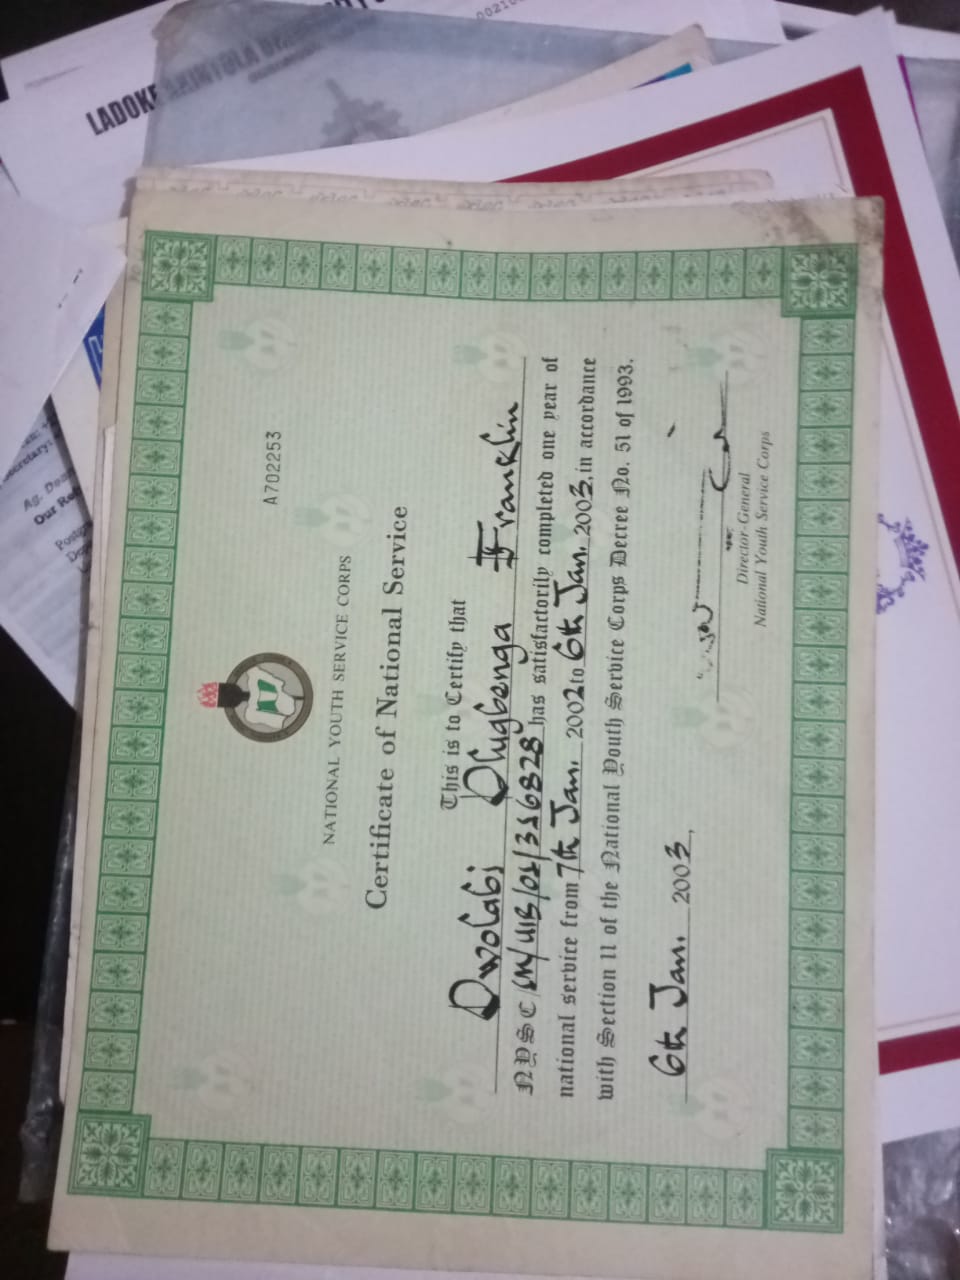 LADOKE AKINTOLA
A702253
NATIONAL YOUTH SERVICE CORPS
Certificate of National Service
This is to Certify that
Owolabi Olugbenga Franklin
NYSC/ has satisfactorily completed one year of
national service from 7th Jan. 2002 to 6th Jan. 2003, in accordance
with Section 11 of the National Youth Service Corps Decree No. 51 of 1993.
6th Jan. 2003,
Director-General
National Youth Service Corps